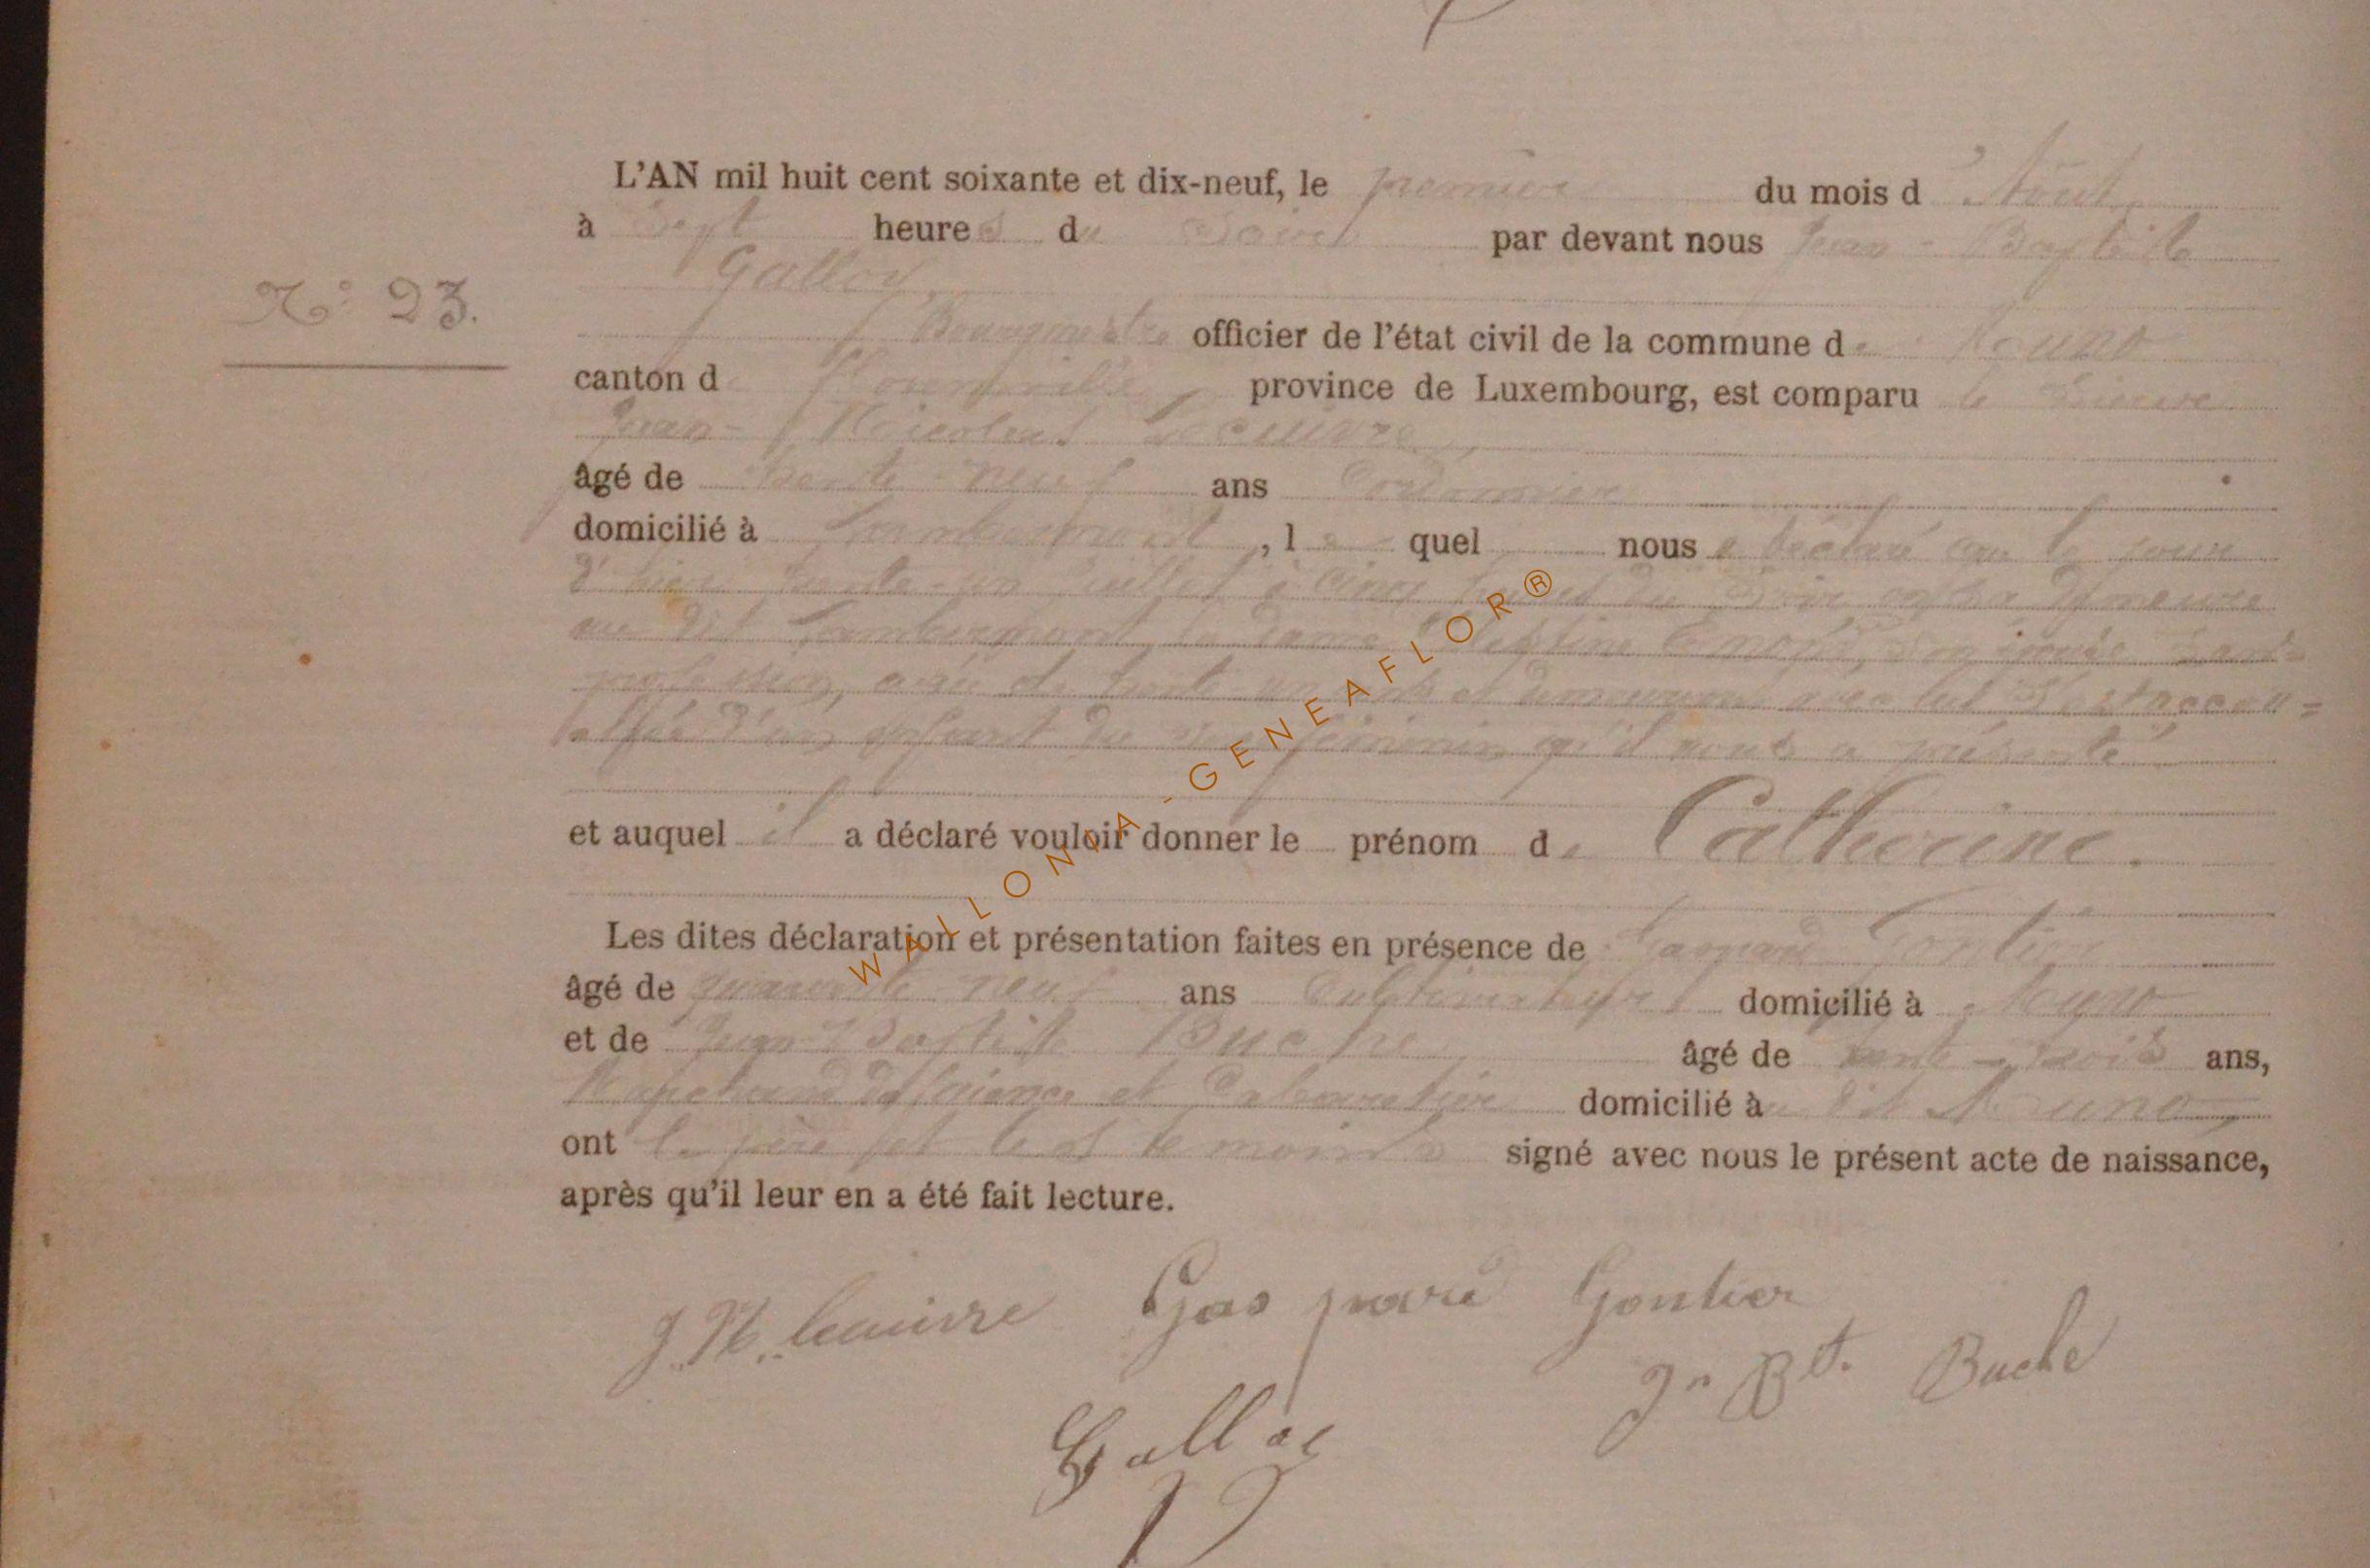 N° 23.
L'AN mil huit cent soixante et dix-neuf, le premier du mois d Août
à Sept heures du Soir par devant nous Jean-Baptiste
Galloy
Bourgmestre officier de l'état civil de la commune de Muno
canton d Florenville province de Luxembourg, est comparu le Sieur
Jean-Nicolas Lecuivre
âgé de trente-neuf ans Cordonnier
domicilié à Lambermont, lequel nous a déclaré que le jour
d'hier trente-un Juillet à Cinq heures du Soir en sa demeure
au dit Lambermont la dame son épouse sans
profession, âgée de trente ans et demeurant avec lui S'est accou=
chée d'un enfant du sexe féminin qu'il nous a présenté
et auquel il a déclaré vouloir donner le prénom de Catherine.
Les dites déclaration et présentation faites en présence de Gaspard Gontier
âgé de quarante-neuf ans Cultivateur domicilié à Muno
et de Jean-Baptiste Buche âgé de trente-trois ans,
Marchand de faïence et Cabaretier domicilié à dit Muno
ont le père et les témoins signé avec nous le présent acte de naissance,
après qu'il leur en a été fait lecture.
J. N. Lecuivre Gaspard Gontier
Jn Bt. Buche
Galloy
WALLONIA-GENEAFLOR®